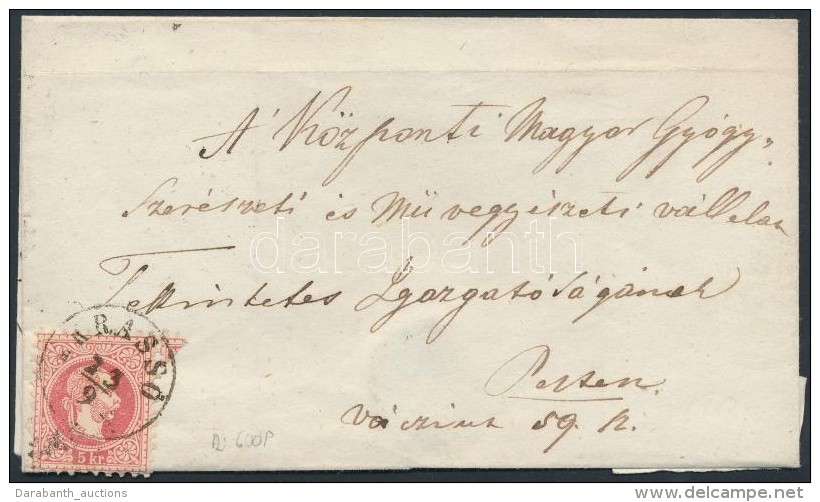 A' Központi Magyar Gyógy„
szerészeti és Mü vegyészeti vállalat
Tekintetes Igazgatóságának
Pesten.
váczi ut 59. k.
KRASSÓ
23
9
5 kr
600P
darabanth
Darabanth_auctions
delcampe.net